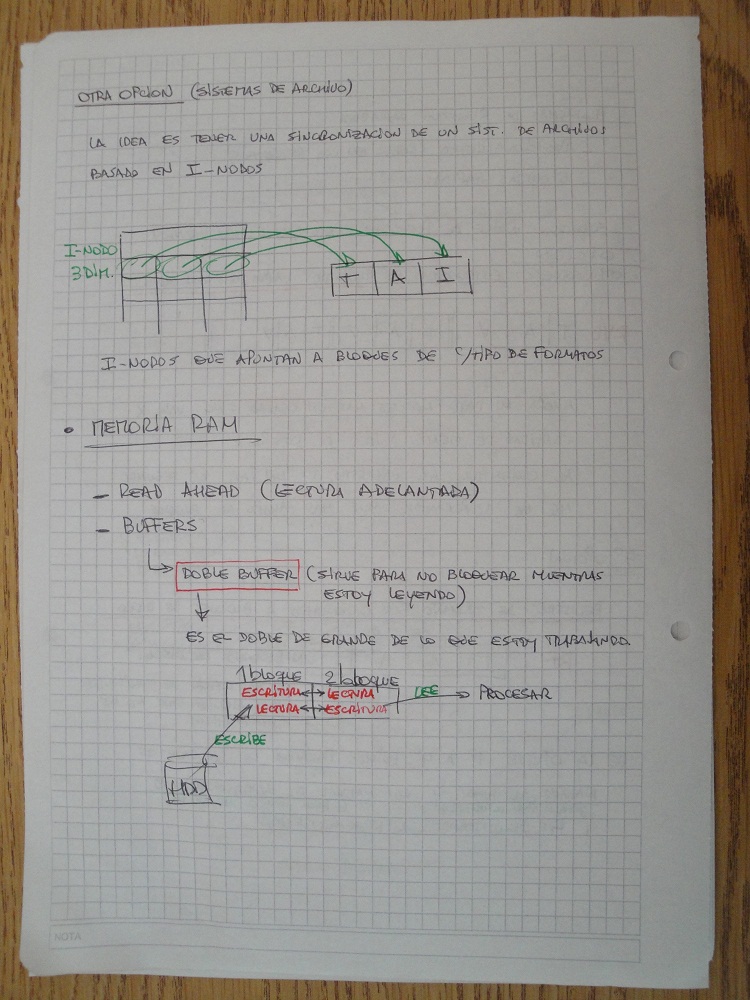 OTRA OPCION (SISTEMAS DE ARCHIVO)
LA IDEA ES TENER UNA SINCRONIZACIÓN DE UN SIST. DE ARCHIVOS
BASADO EN I-NODOS
I-NODO
3 DIM.
T A I
I-NODOS QUE APUNTAN A BLOQUES DE C/TIPO DE FORMATOS
• MEMORIA RAM
- READ AHEAD (LECTURA ADELANTADA)
- BUFFERS
DOBLE BUFFER (SIRVE PARA NO BLOQUEAR MIENTRAS
ESTOY LEYENDO)
ES EL DOBLE DE GRANDE DE LO QUE ESTOY TRABAJANDO.
1 bloque 2 bloque
ESCRITURA LECTURA LEE PROCESAR
LECTURA ESCRITURA
ESCRIBE
HDD
NOTA